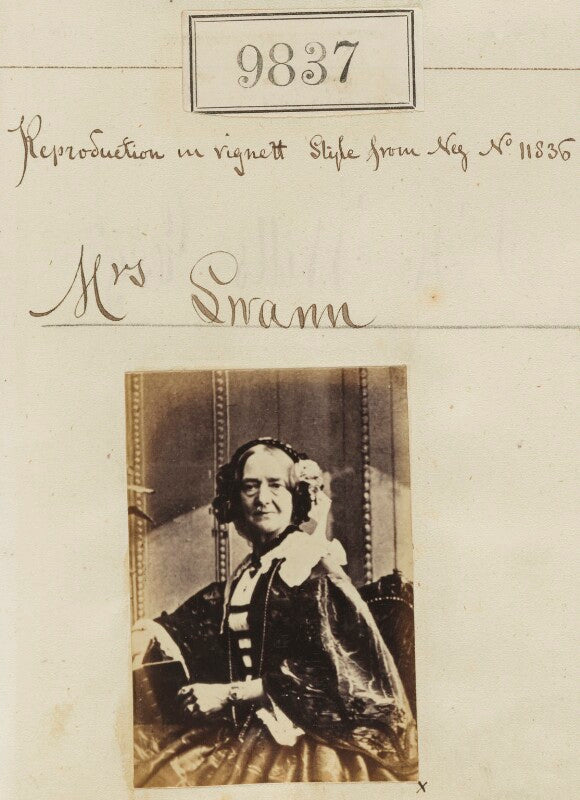 9837
Reproduction in vignett Style from Neg Nº 11836
Mrs Swann
x